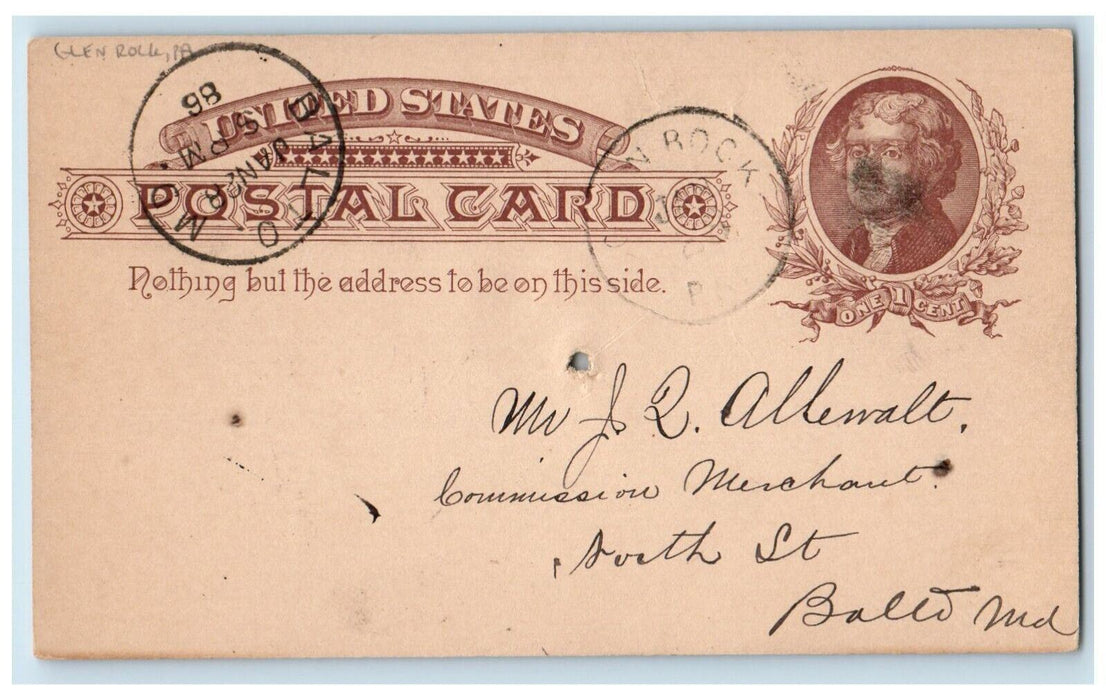 GLEN ROCK, PA
UNITED STATES
POSTAL CARD
Nothing but the address to be on this side.
BALTO. MD.
JAN 2
5 PM
86
N ROCK
ONE 1 CENT
Mr J. Q. Allewalt.
Commission Merchant.
North St
Balto Md